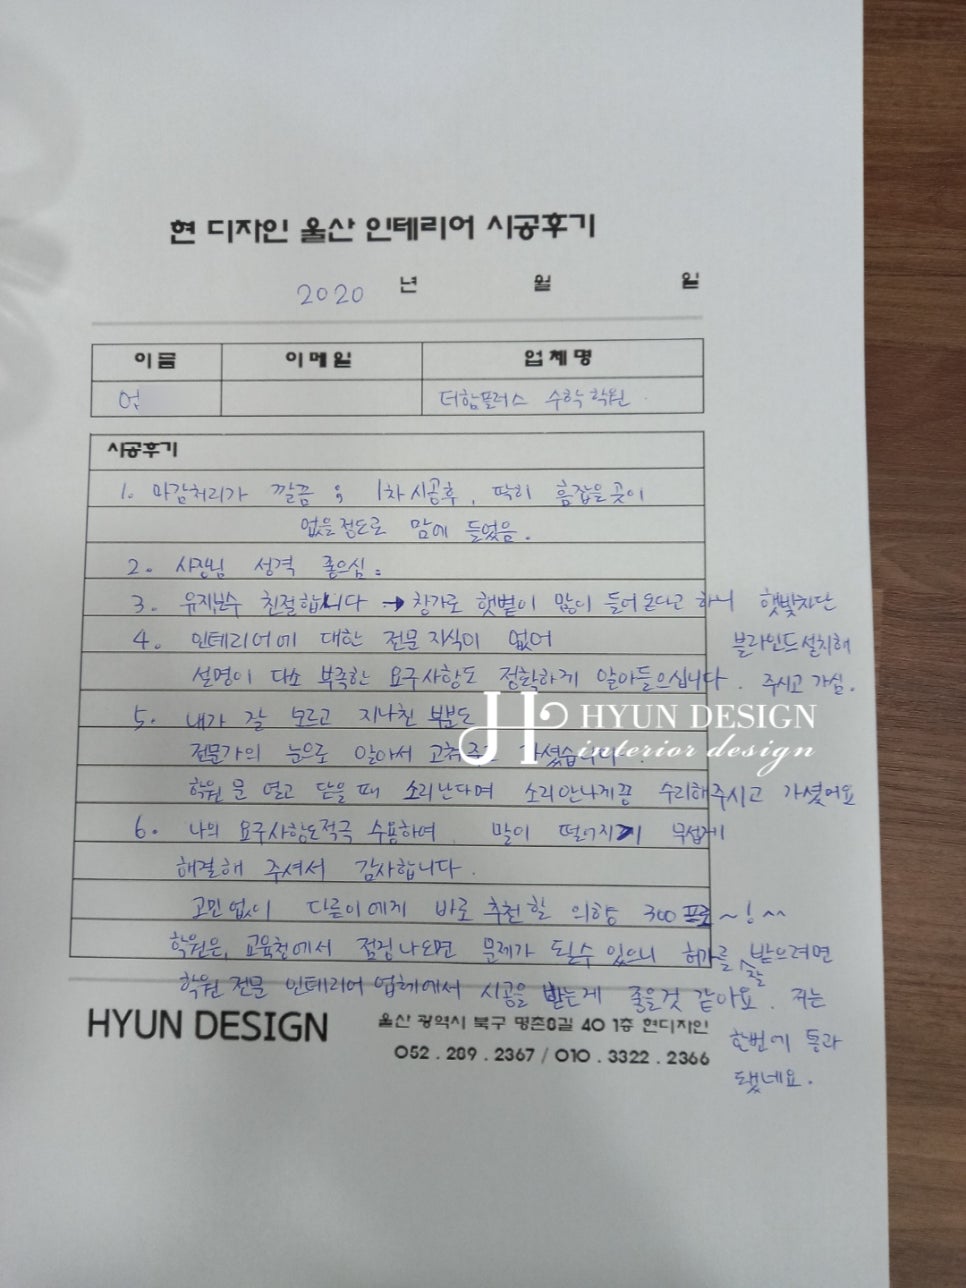 현 디자인 울산 인테리어 시공후기
2020 년 월 일
이름 이메일 업체명
어 더함플러스 수학학원
시공후기
1. 마감처리가 깔끔; 1차 시공후, 딱히 흠잡을곳이
없을정도로 맘에 들었음.
2. 사장님 성격 좋으심:
3. 유지보수 친절합니다 → 창가로 햇볕이 많이 들어온다고 하니 햇빛차단
블라인드설치해
주시고 가심.
4. 인테리어에 대한 전문지식이 없어
설명이 다소 부족한 요구사항도 정확하게 알아들으십니다.
5. 내가 잘 모르고 지나친 부분도
전문가의 눈으로 알아서 고쳐주고 가셨습니다.
학원 문 열고 닫을때 소리난다며 소리안나게끔 수리해주시고 가셨어요
6. 나의 요구사항도적극 수용하여 말이 떨어지기 무섭게
해결해 주셔서 감사합니다.
고민없이 다른이에게 바로 추천할 의향 300프로~!^^
학원은, 교육청에서 점검나오면 문제가 될수 있으니 허가를 잘 받으려면
학원 전문 인테리어 업체에서 시공을 받는게 좋을것 같아요. 저는
한번에 통과
됐네요.
HYUN DESIGN
interior design
HYUN DESIGN
울산 광역시 북구 명촌8길 40 1층 현디자인
052 . 289 . 2367 / 010 . 3322 . 2366